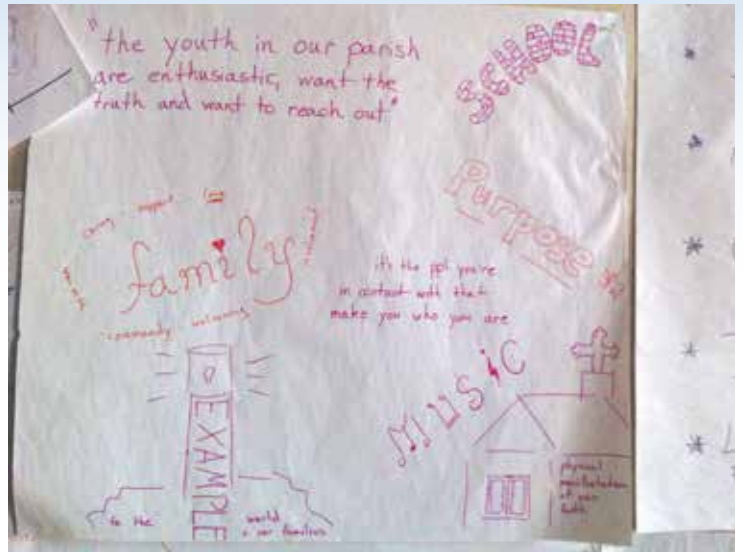 "the youth in our parish
are enthusiastic, want the
truth and want to reach out"
SCHOOL
Purpose
caring support love
family
community welcoming
it's the ppl you're
in contact with that
make you who you are
music
EXAMPLE
to the world
& our families
physical
manifestation
of our
faith